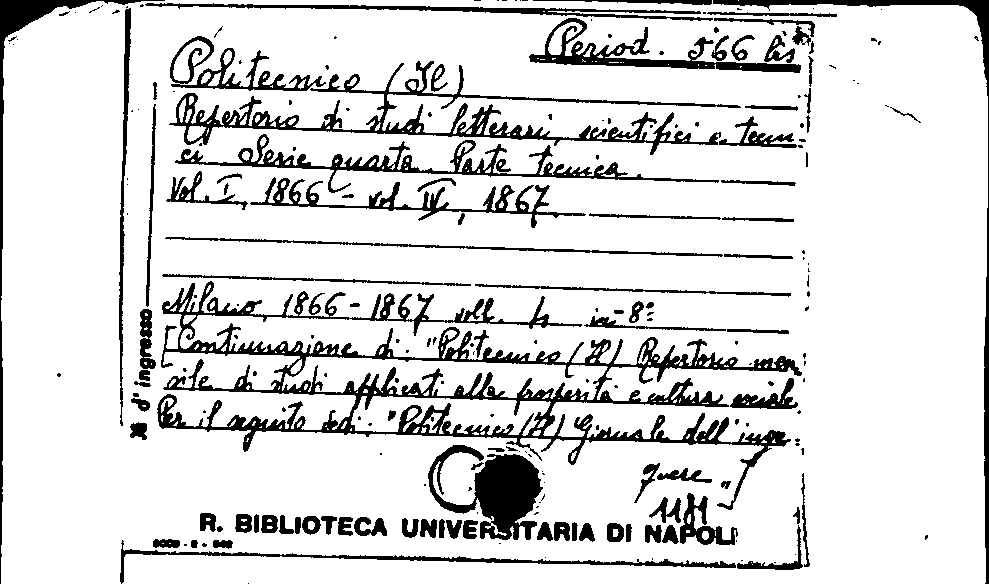 Period. 566 bis
Politecnico (Il)
Repertorio di studi letterari, scientifici e tecni-
ci Serie quarta. Parte tecnica.
Vol. I, 1866 - vol. IV, 1867.
Milano, 1866-1867 voll. 4 in-8°
[Continuazione di: "Politecnico (Il) Repertorio men-
sile di studi applicati alla prosperità e cultura sociale
Per il seguito vedi: "Politecnico (Il) Giornale dell'inge-
gnere"]
N. d'ingresso
R. BIBLIOTECA UNIVERSITARIA DI NAPOLI